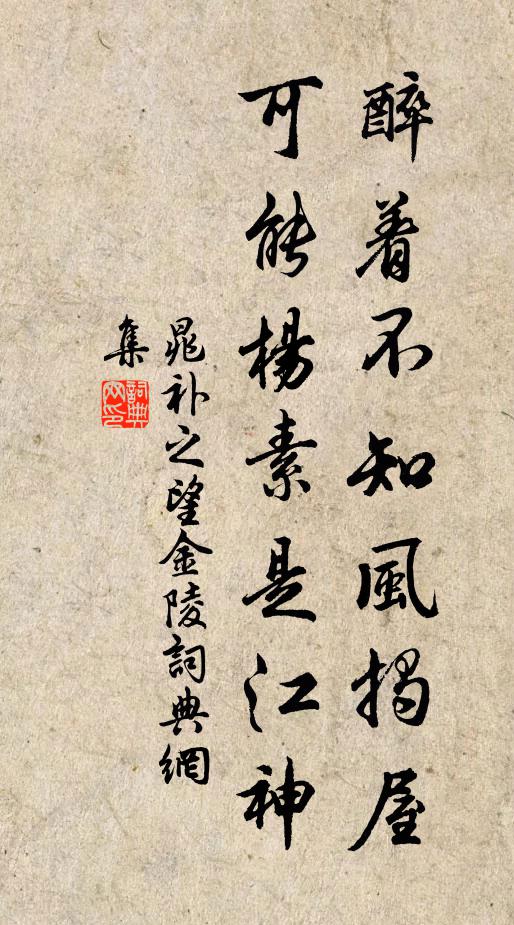 醉着不知風揭屋
可能楊素是江神
晁补之望金陵詞典網
集
詞典网印